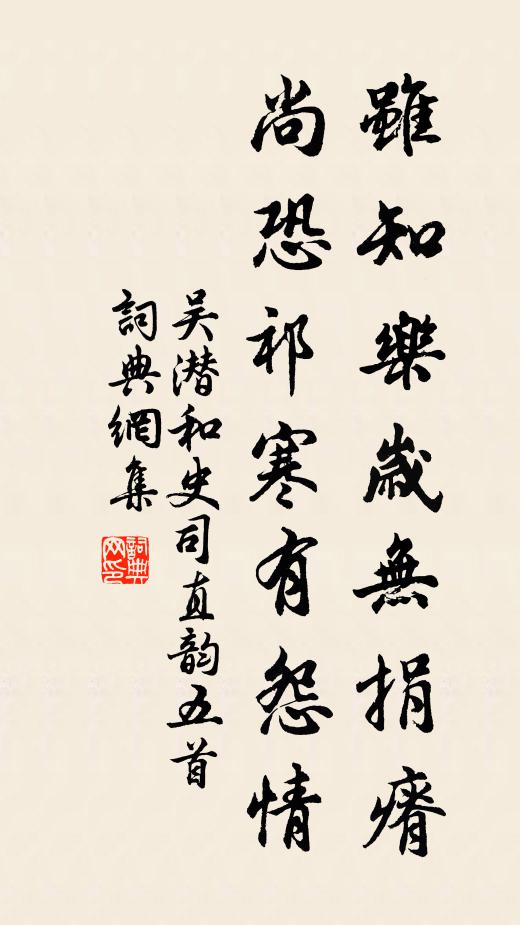 雖知樂歲無捐瘠
尚恐祁寒有怨情
吴潜和史司直韵五首
詞典網集
詞典網印